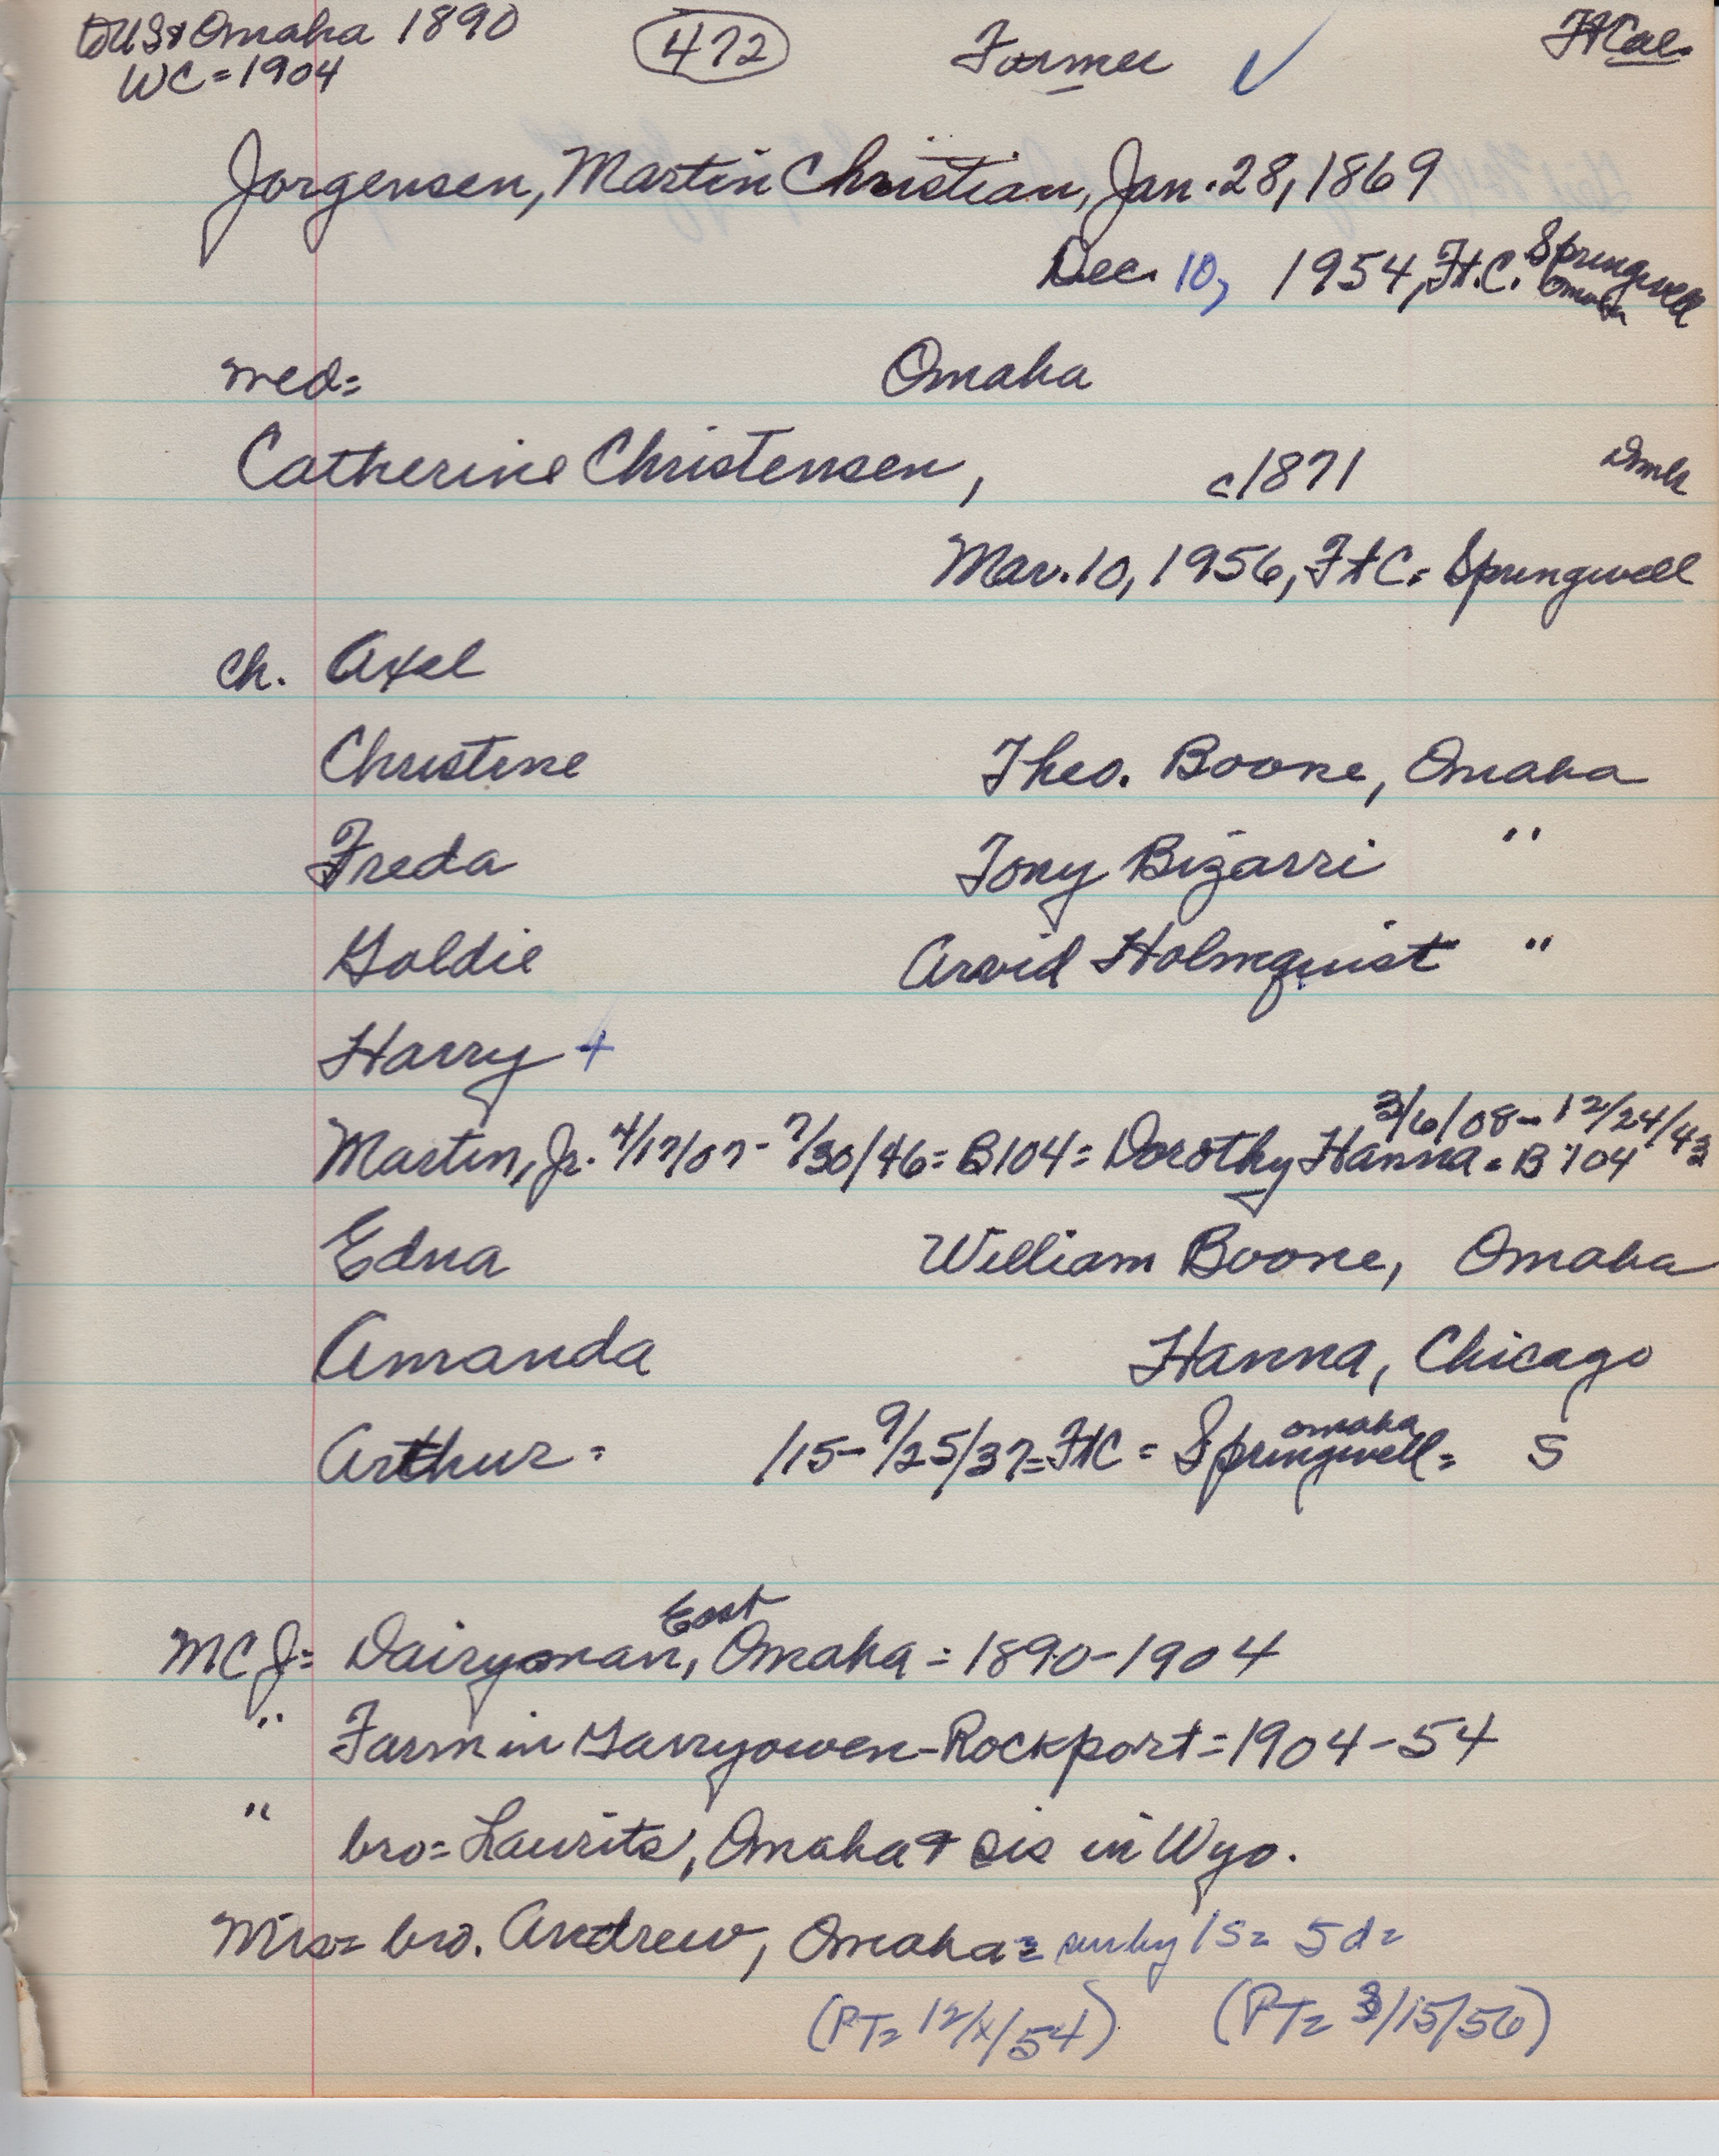 to US & Omaha 1890 (472) Farmer ✓ Ft Cal.
WC = 1904
Jorgensen, Martin Christian, Jan. 28, 1869
Dec. 10, 1954, Ft. C. Springwell
Omaha
med = Omaha
Catherine Christensen, c1871 Dmk
Mar. 10, 1956, Ft C = Springwell
ch. Axel
Christine Theo. Boone, Omaha
Freda Tony Bizarri "
Goldie Arvid Holmquist "
Harry +
3/6/08 - 12/24/43
Martin, Jr. 4/17/07 - 7/30/46 = B104 = Dorothy Hanna = B 104
Edna William Boone, Omaha
Amanda Hanna, Chicago
Omaha
Arthur = /15 - 9/25/37 = Ft C = Springwell = S
East
MCJ = Dairyman, Omaha = 1890-1904
" Farm in Garryowen-Rockport = 1904-54
" bro = Laurits, Omaha & sis in Wyo.
Mrs = bro. Andrew, Omaha = sur by 1S = 5d =
(PT = 12/x/54) (PT = 3/15/56)